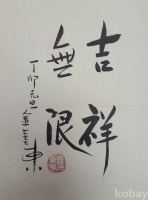 吉祥
無限
丁卯元旦
東
kobay